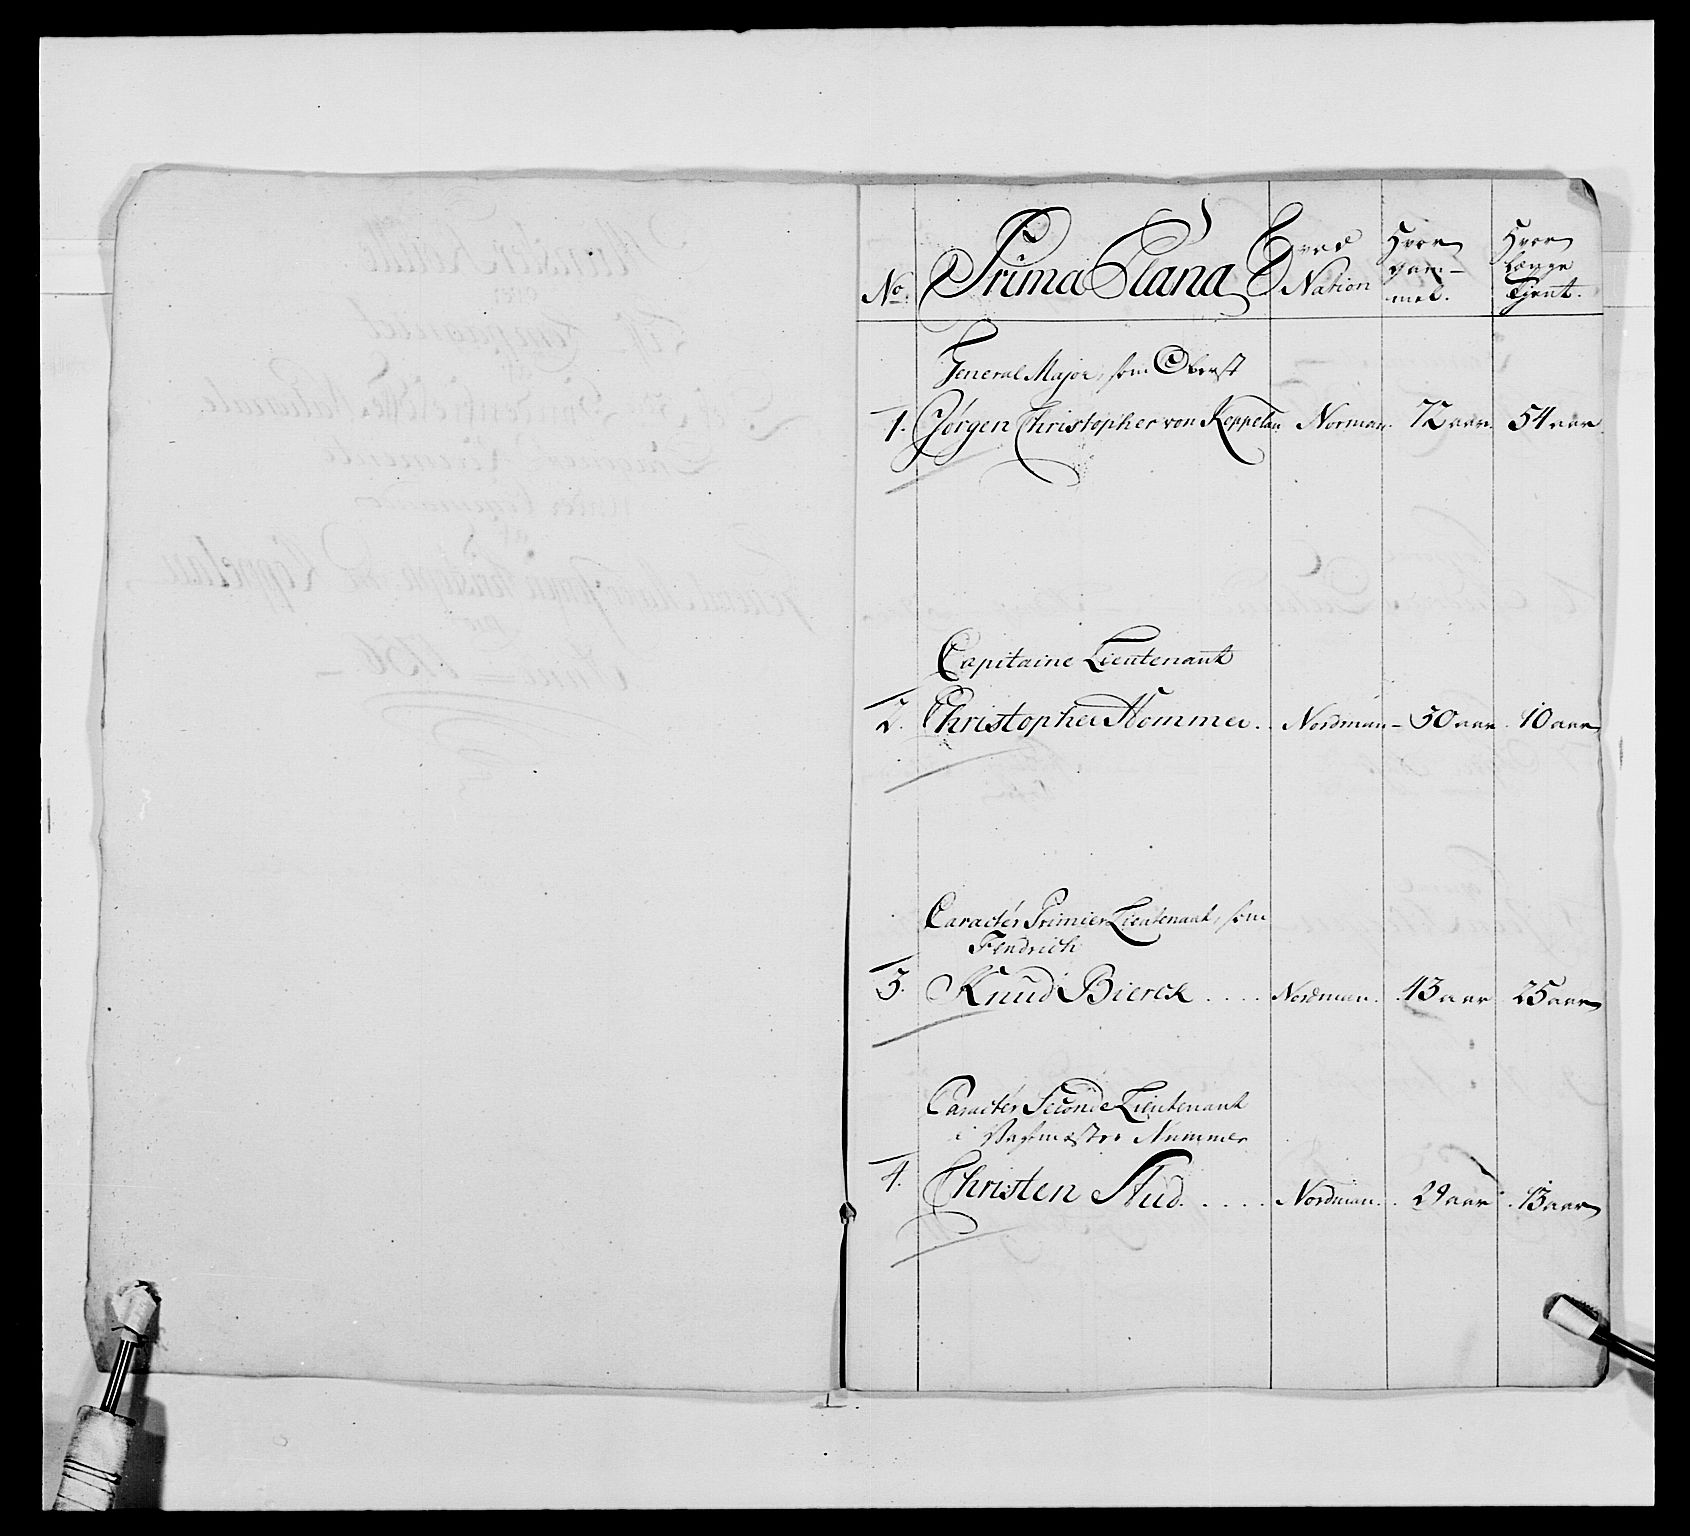 No. Prima Plana Hvad Nation Hvor gam- mel. Hvor længe Tjent.
General Major, som Oberst
1. Jørgen Christopher von Koppelau Norman 72 aar. 54 aar
Capitaine Lieutenant
2. Christopher Hommer. Nordman - 50 aar. 10 aar
Caractér Primier Lieutenant, som
Fendrich
3. Knud Bierck .... Nordman. 43 aar 25 aar
Caractér Seconde Lieutenant
i Vagtmæster Nummer
4. Christen Stud. .... Nordman. 29 aar. 13 aar